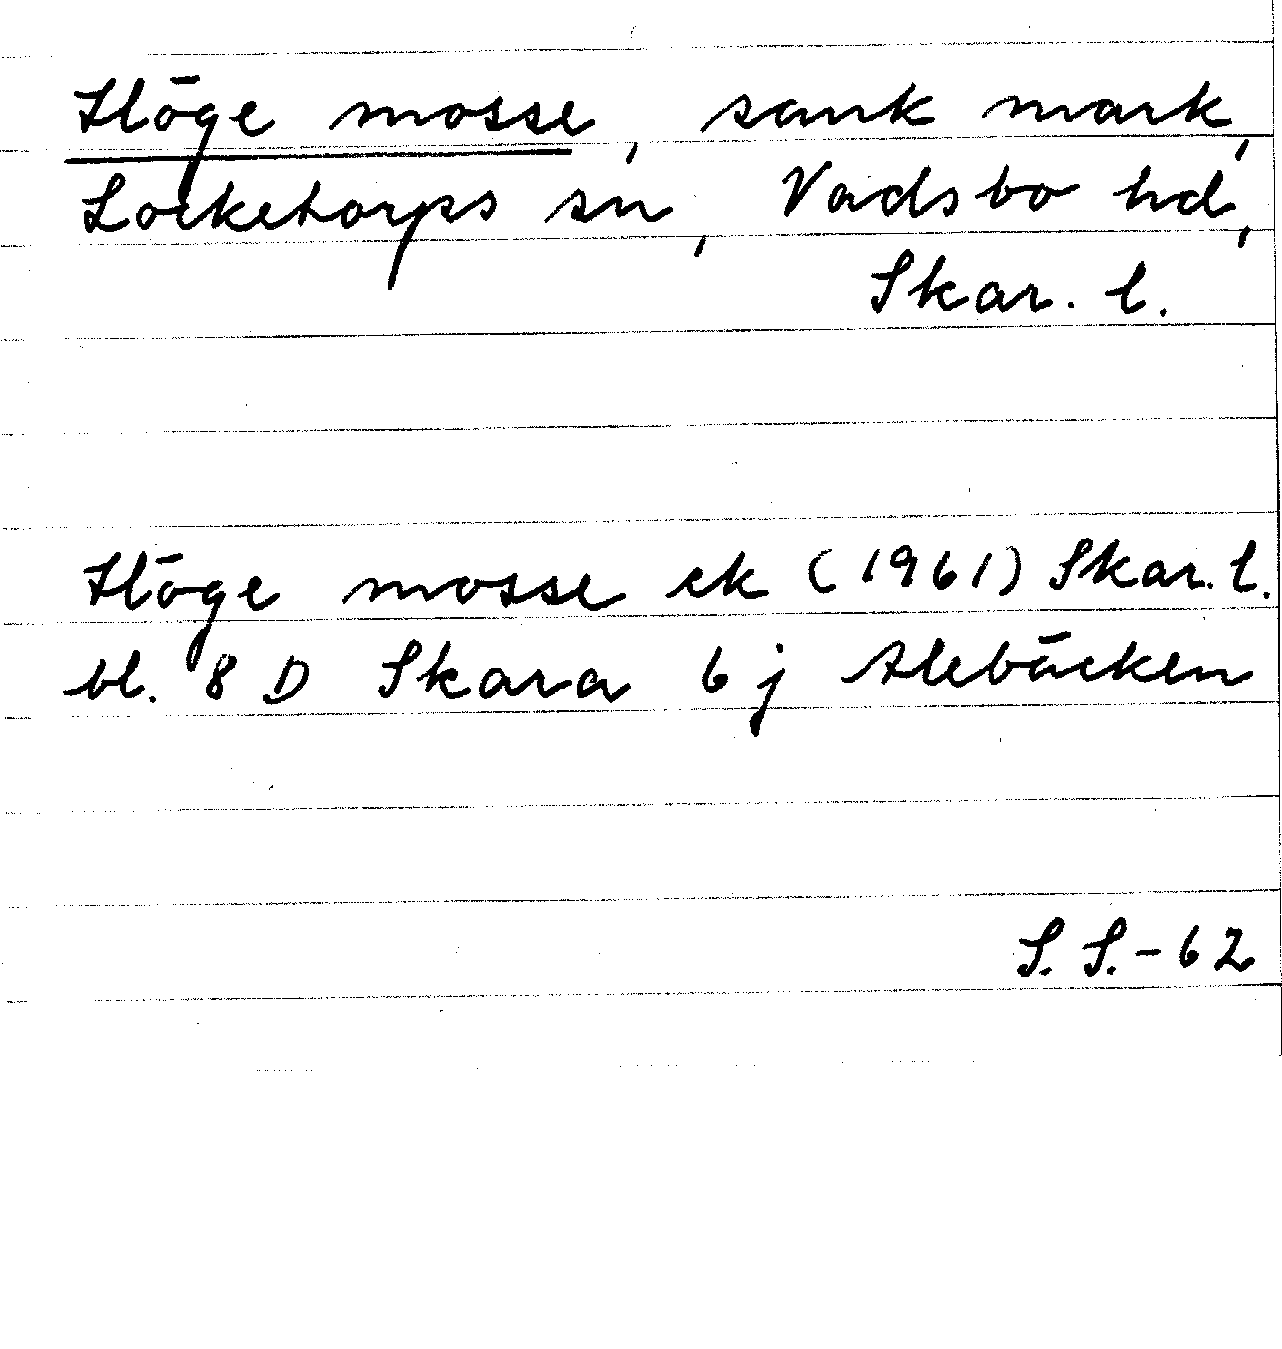 Höge mosse, sank mark,
Locketorps sn, Vadsbo hd,
Skar. l.
Höge mosse ek (1961) Skar. l.
bl. 8 D Skara 6 j Alebäcken
S. S. - 62